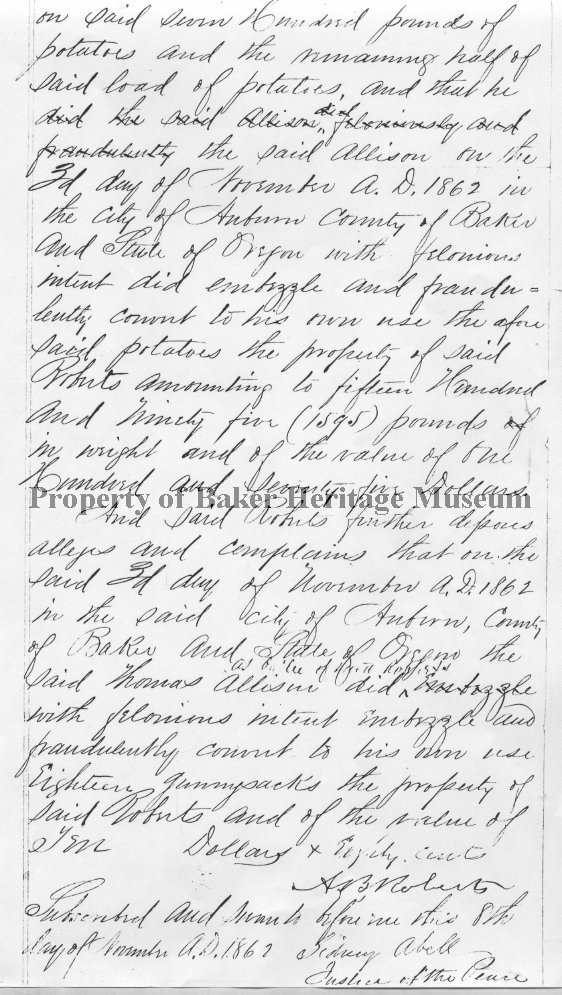 on said seven Hundred pounds of
potatoes and the remaining half of
said load of potatoes, and that he
did the said Allison, did feloniously and
fraudulently the said Allison on the
3d day of November A. D. 1862 in
the city of Auburn County of Baker
and State of Oregon with felonious
intent did embezzle and fraudu=
lently convert to his own use the afore
said potatoes the property of said
Roberts amounting to fifteen Hundred
and Ninety five (1595) pounds of
in weight and of the value of One
Hundred and Seventy five Dollars
Property of Baker Heritage Museum
And said Roberts further deposes
alleges and complains that on the
said 3d day of November A.D. 1862
in the said city of Auburn, County
of Baker and State of Oregon the
as bailee of said Roberts
said Thomas Allison did embezzle
with felonious intent embezzle and
fraudulently convert to his own use
Eighteen gunnysacks the property of
said Roberts and of the value of
Ten Dollars & Eighty cents
A B Roberts
Subscribed and sworn to before me this 8th
day of November A.D. 1862 Sidney Abell
Justice of the Peace